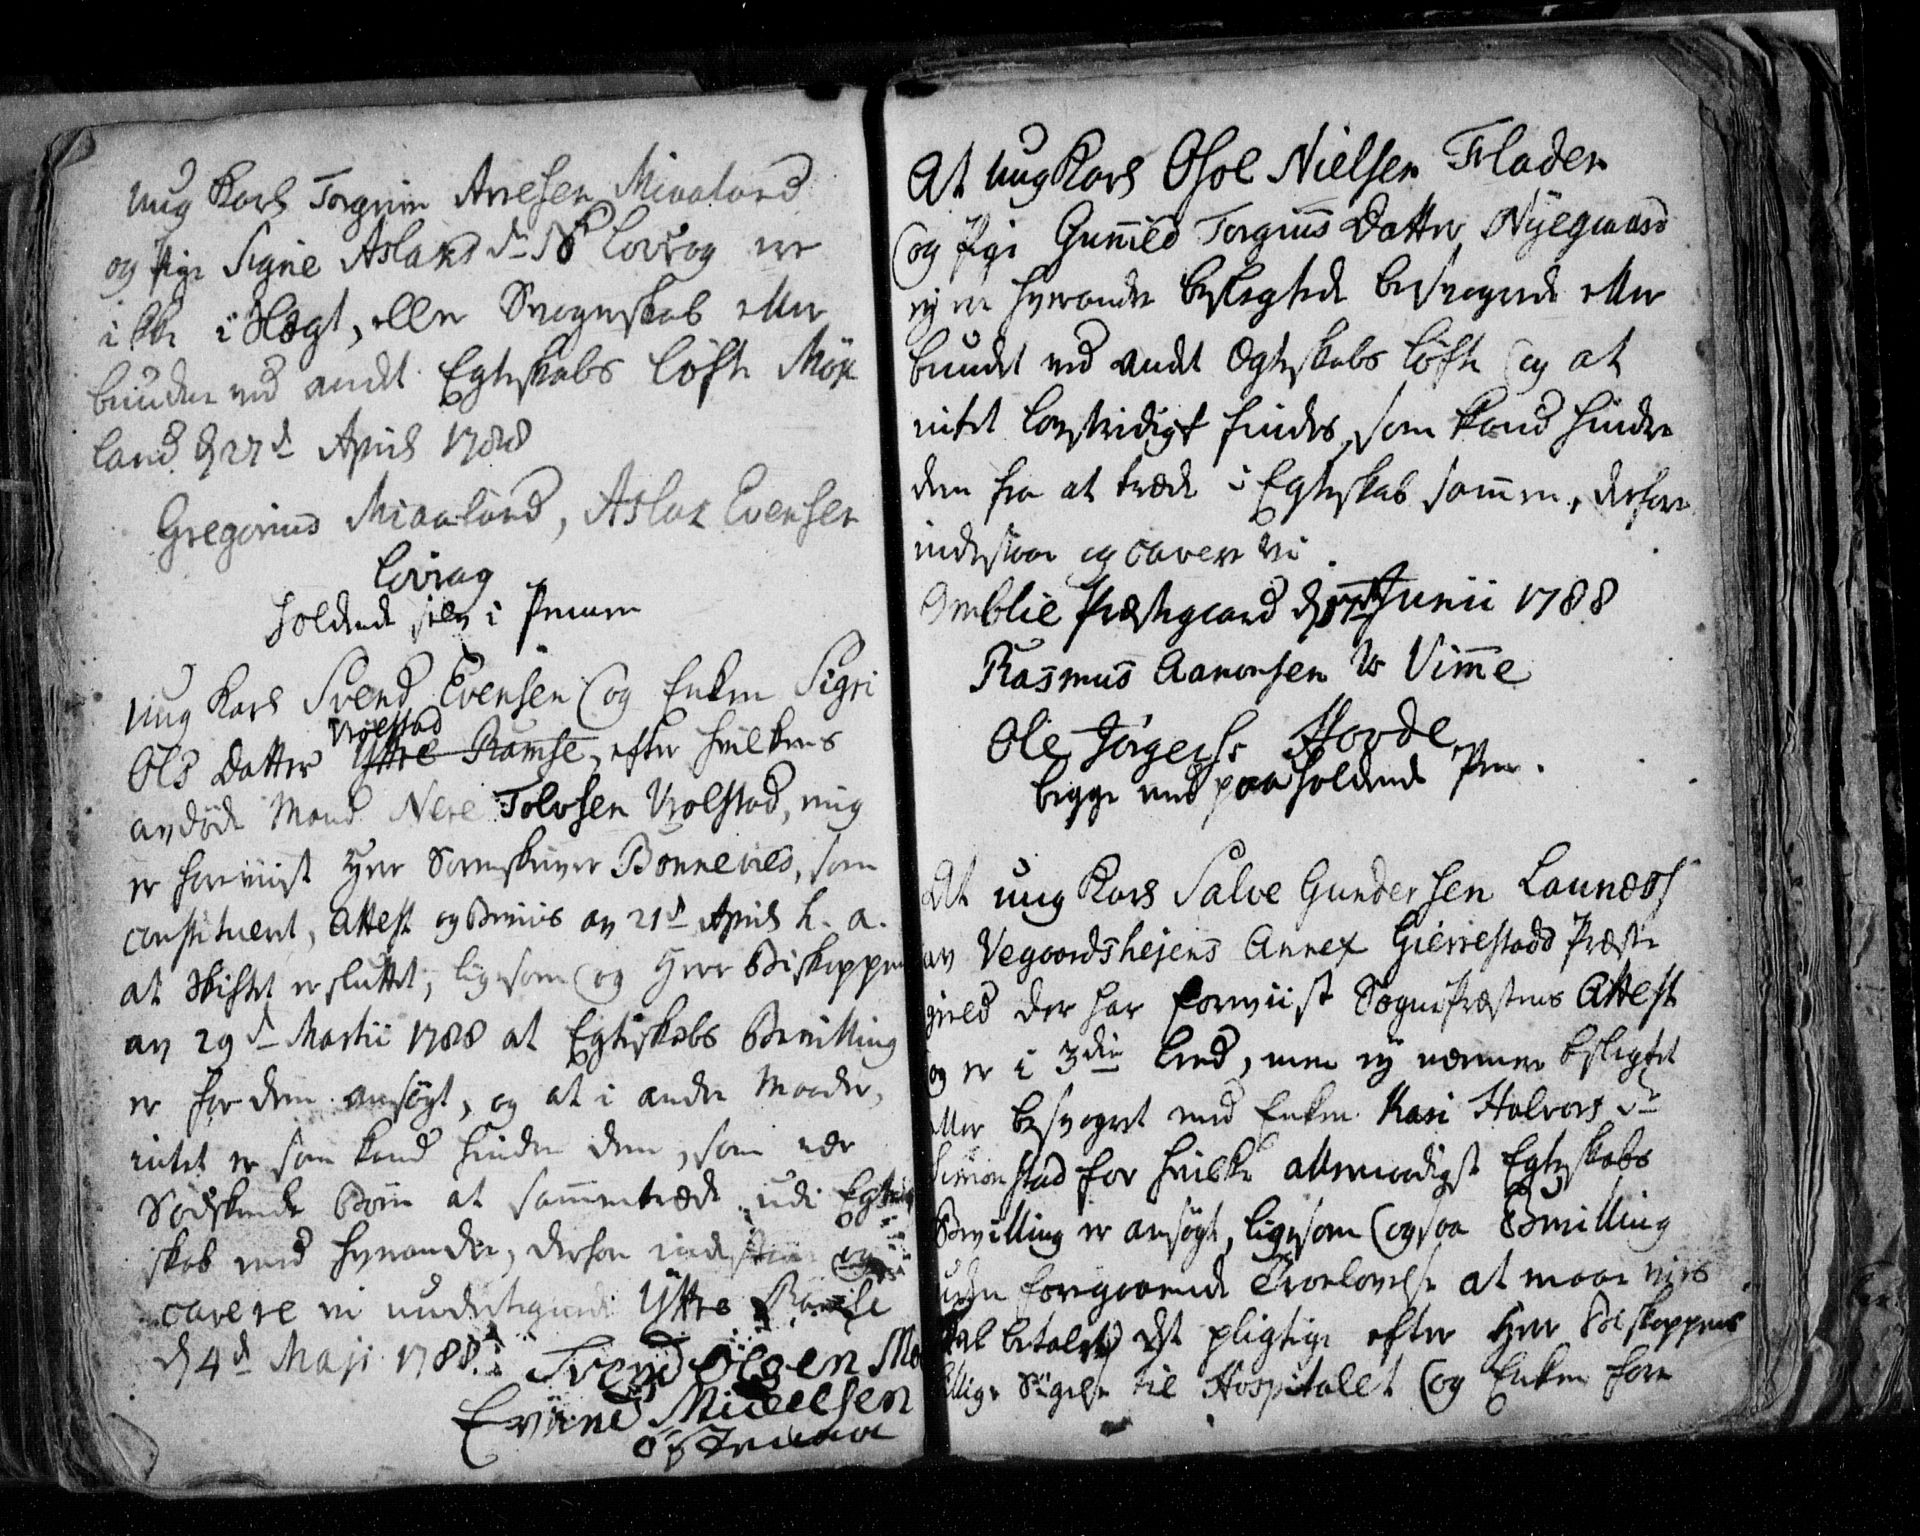 ung Karl Torgrim Aresen Miaaland
og Pige Signe Aslaks d. Lovrag ere
ikke i Slægt, eller Svogerskab eller
bunden ved andet Egteskabs Løfte Møx
land d 27d April 1788
Gregorius Miaaland, Aslak Evensen
Lovrag
holdende selv i Pennen
ung Karl Svend Evensen og Enken Sigri
Vrølstad
Ols Datter Yttre Ramse, efter hvilkens
avdøde Mand Nere Tolvsen Vrolstad, mig
er foreviist Herr Sorenskriver Bonnevies, som
constitueret, Attest og Beviis av 21d April h. a.
at Skiftet er sluttet, ligesom og Herr Biskoppens
av 29d Martii 1788 at Egteskabs Bevilling
er for dem ansøgt, og at i andre Maader,
intet er som kand hindre dem, som nær
Sødskende Børn at sammentræde udi Egte
skab med hverandre, derfor indestaar og
cavere vi undertegnede Yttre Ramse
d 4d Maji 1788.
Svend Olsen
Evind Micelsen
At ung Karl Osol Nielsen Fladen
og Pige Gunnild Torgius Datter Nyegaard
ej ere hverandre beslegtede besvogrede eller
bundet ved andet Ægteskabs Løfte og at
intet lovstridigt findes, som kand hindre
dem fra at træde i Egteskab sammen, derfore
indestaar og cavere vi
Omblie Præstegaard d 17d Junii 1788
Rasmus Aanonsen Vimme
Ole Jørgens. Hovde
begge med paaholdende Pen.
At ung Karl Salve Gundersen Launæss
av Vegaardshejens Annex Gierrestadd Præste
gield der har forviist Sognepræstens Attest
og er i 3die Leed, men ej nærmere beslegtet
eller besvogret med Enken Kari Halvors dr
Simonstad for hvilke allernaadigst Egteskabs
Bevilling er ansøgt, ligesom ogsaa Bevilling
uden foregaaende Troelovelse at maae vies
skal betale det pligtige efter Herr Biskoppens
billige Sigelse til Hospitalet og Enken fore